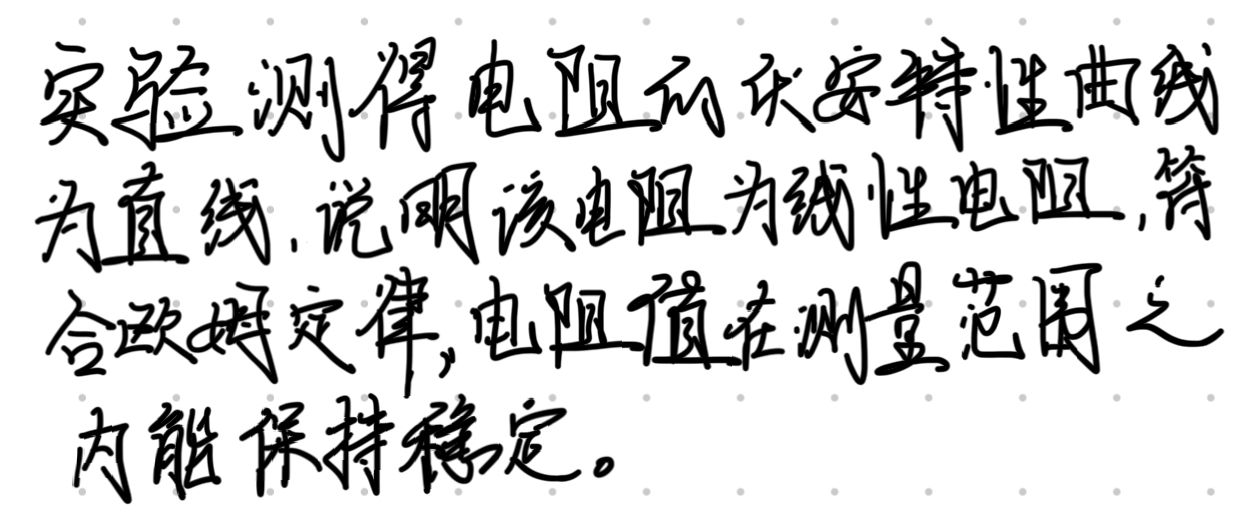 实验测得电阻的伏安特性曲线
为直线,说明该电阻为线性电阻,符
合欧姆定律,电阻值在测量范围之
内能保持稳定。